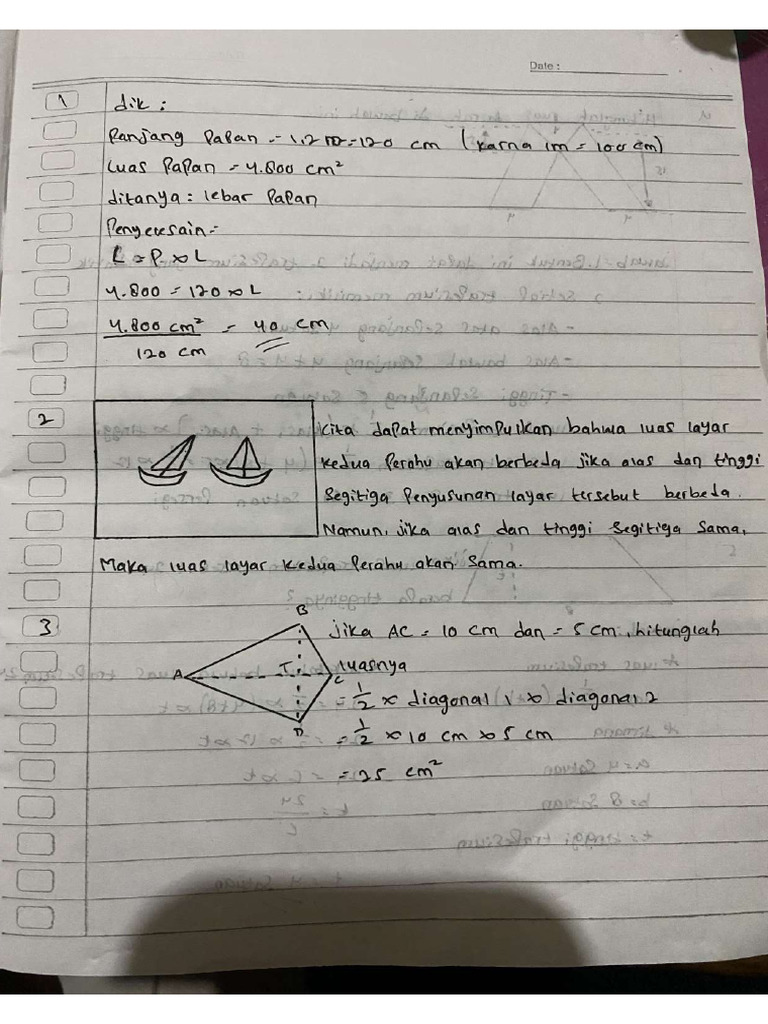 Date :
1 dik :
Panjang Papan = 1.2 m = 120 cm (karna 1m = 100 cm)
Luas Papan = 4.800 cm²
ditanya : lebar Papan
Penyelesain :
L = P x L
4.800 = 120 x L
4.800 cm² = 40 cm
120 cm
2 Kita dapat menyimpulkan bahwa luas layar
kedua Perahu akan berbeda jika alas dan tinggi
Segitiga Penyusunan layar tersebut berbeda.
Namun, jika alas dan tinggi Segitiga Sama,
Maka luas layar kedua Perahu akan Sama.
3 B
jika AC = 10 cm dan = 5 cm, hitunglah
A T C luasnya
= 1/2 x diagonal 1 x diagonal 2
D = 1/2 x 10 cm x 5 cm
= 25 cm²